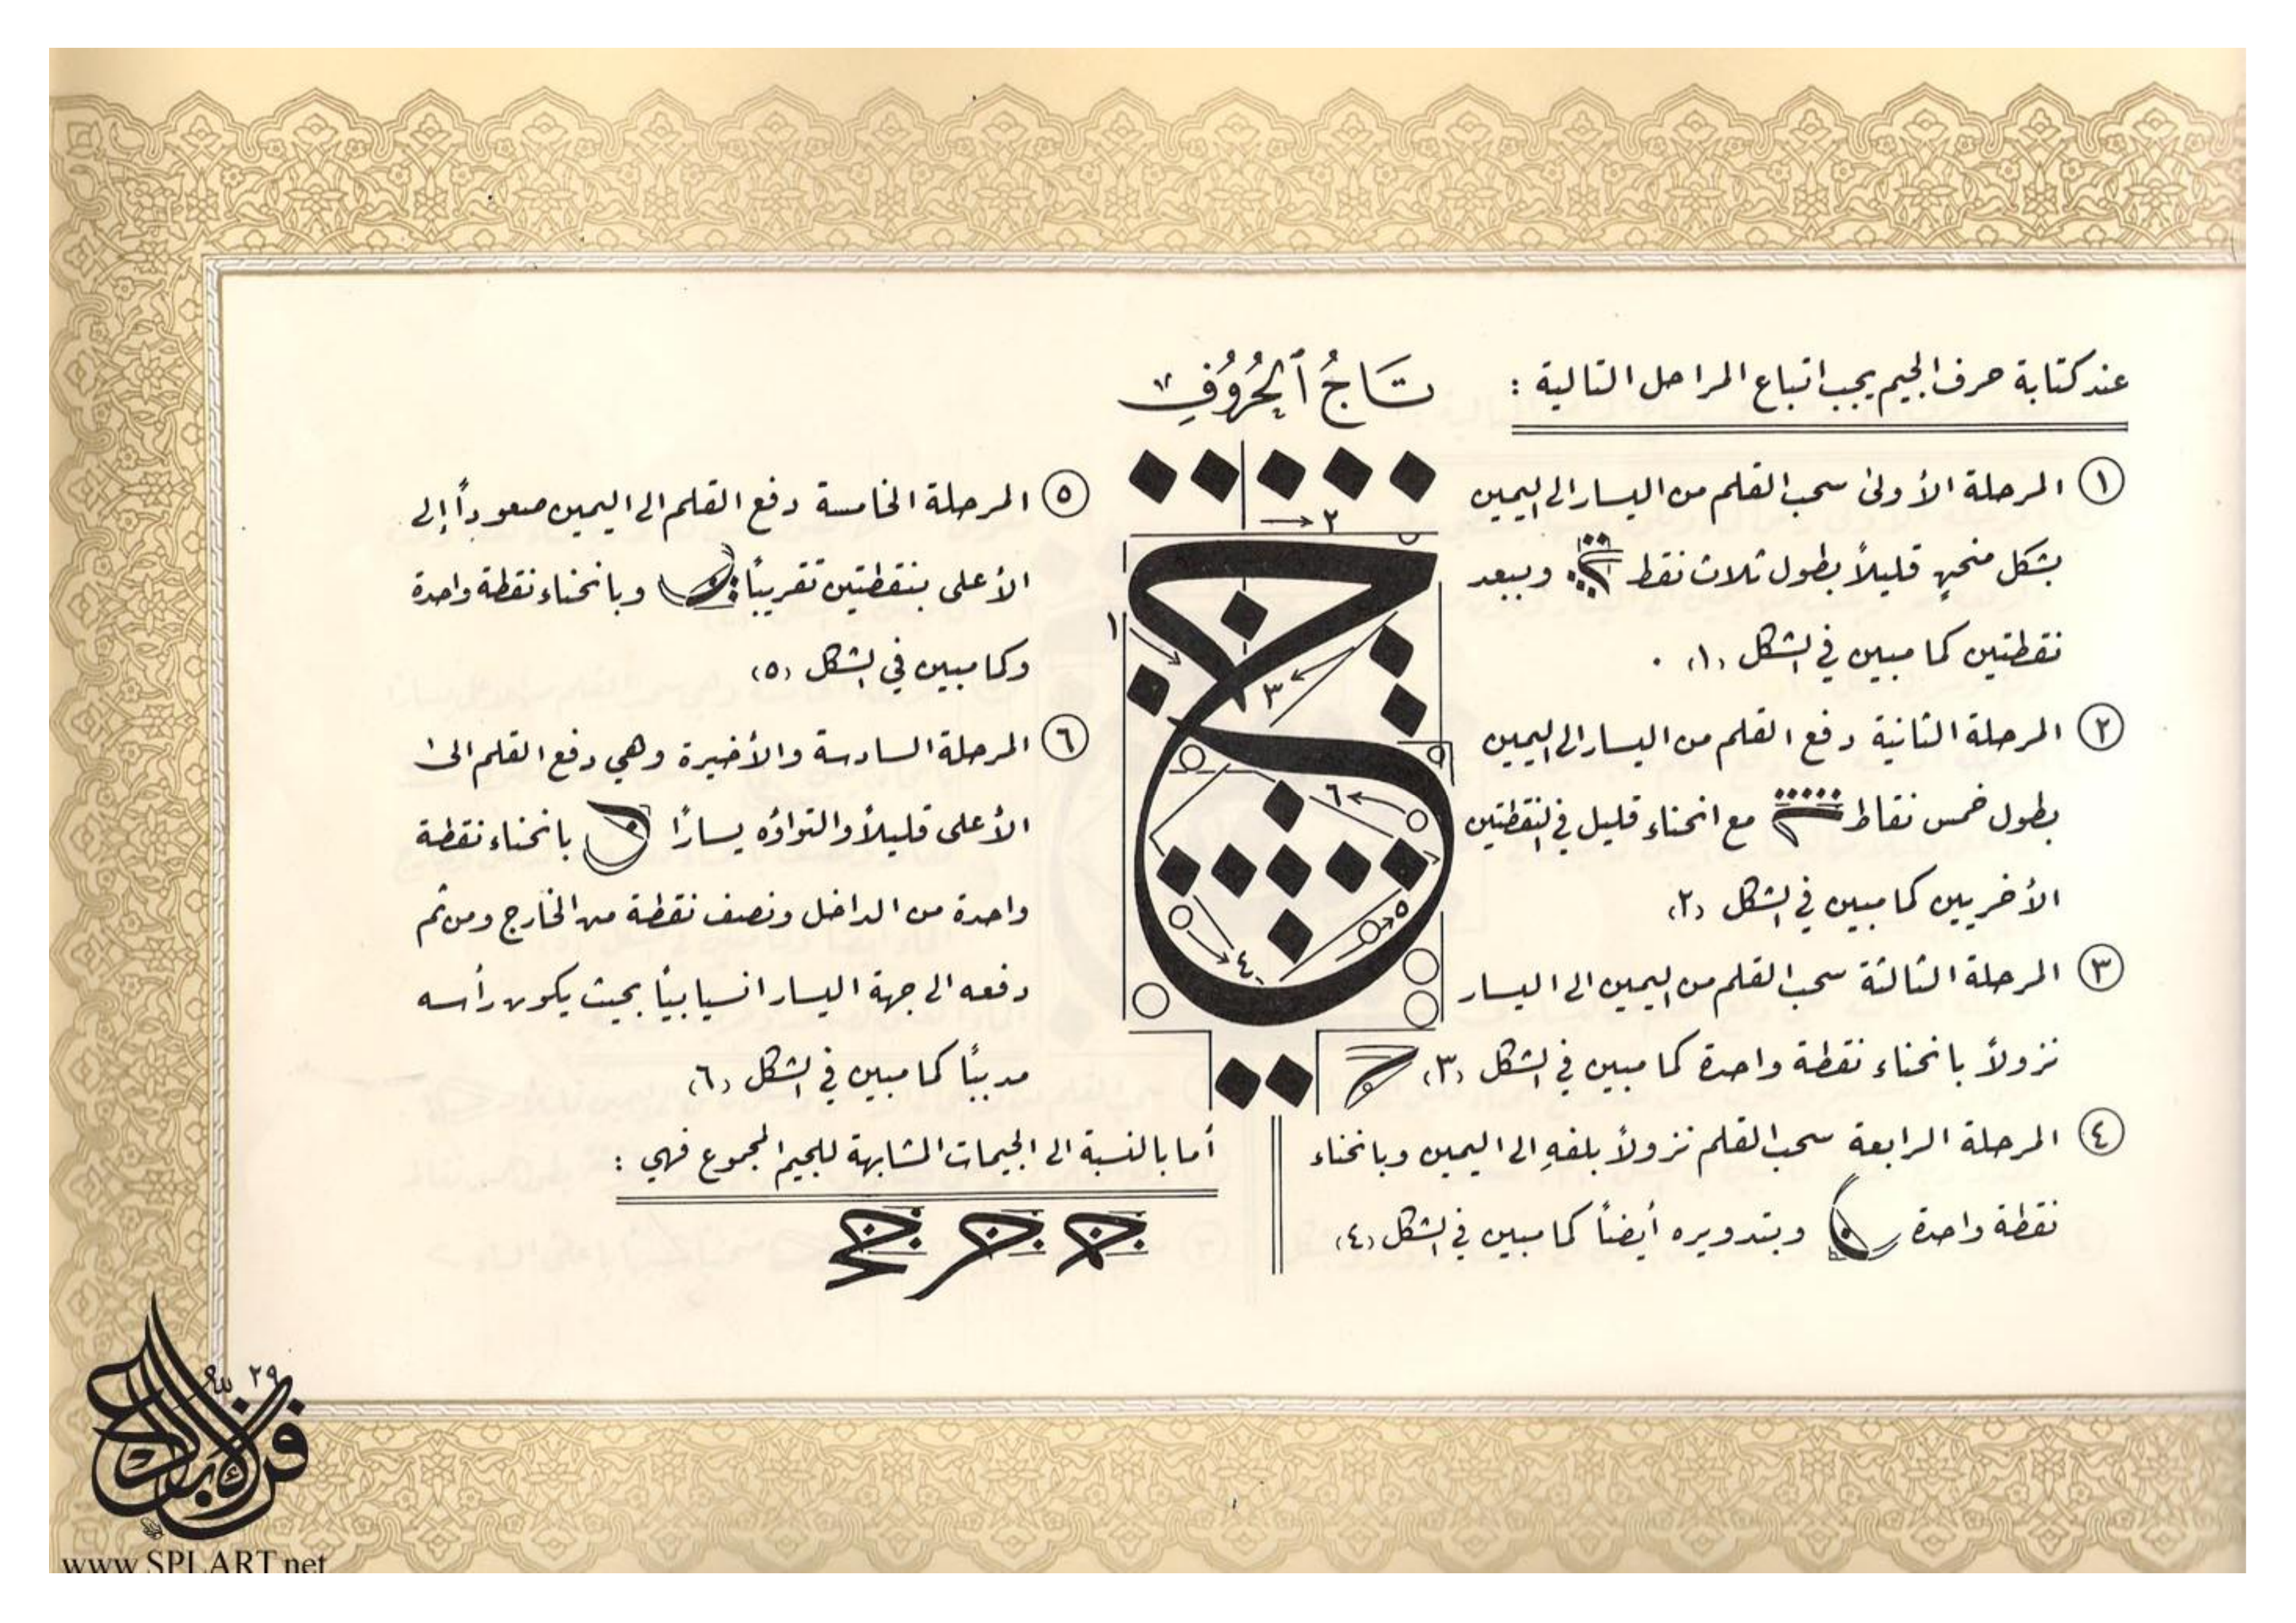 تَاجُ ٱلْحُرُوُفِ
عند كتابة حرف الجيم يجب اتباع المراحل التالية :
١ المرحلة الأولىٰ سحب القلم من اليسار الى اليمين
بشكل منحنٍ قليلاً بطول ثلاث نقط وببعد
نقطتين كما مبين في الشكل (١) .
٢ المرحلة الثانية دفع القلم من اليسار الى اليمين
بطول خمس نقاط مع انحناء قليل في النقطتين
الأخريين كما مبين في الشكل (٢)
٣ المرحلة الثالثة سحب القلم من اليمين الى اليسار
نزولاً بانحناء نقطة واحدة كما مبين في الشكل (٣)
٤ المرحلة الرابعة سحب القلم نزولاً بلفهِ الى اليمين وبانحناء
نقطة واحدة وبتدويره أيضاً كما مبين في الشكل (٤)
١
٢
٣
٤
٥
٦
٥ المرحلة الخامسة دفع القلم الى اليمين صعوداً إلى
الأعلى بنقطتين تقريباً وبانحناء نقطة واحدة
وكما مبين في الشكل (٥)
٦ المرحلة السادسة والأخيرة وهي دفع القلم الىٰ
الأعلى قليلاً والتواؤه يساراً بانحناء نقطة
واحدة من الداخل ونصف نقطة من الخارج ومن ثم
دفعه الى جهة اليسار انسيابياً بحيث يكون رأسه
مدبباً كما مبين في الشكل (٦)
أما بالنسبة الى الجيمات المشابهة للجيم المجموع فهي :
٢٩
www.SPLART.net